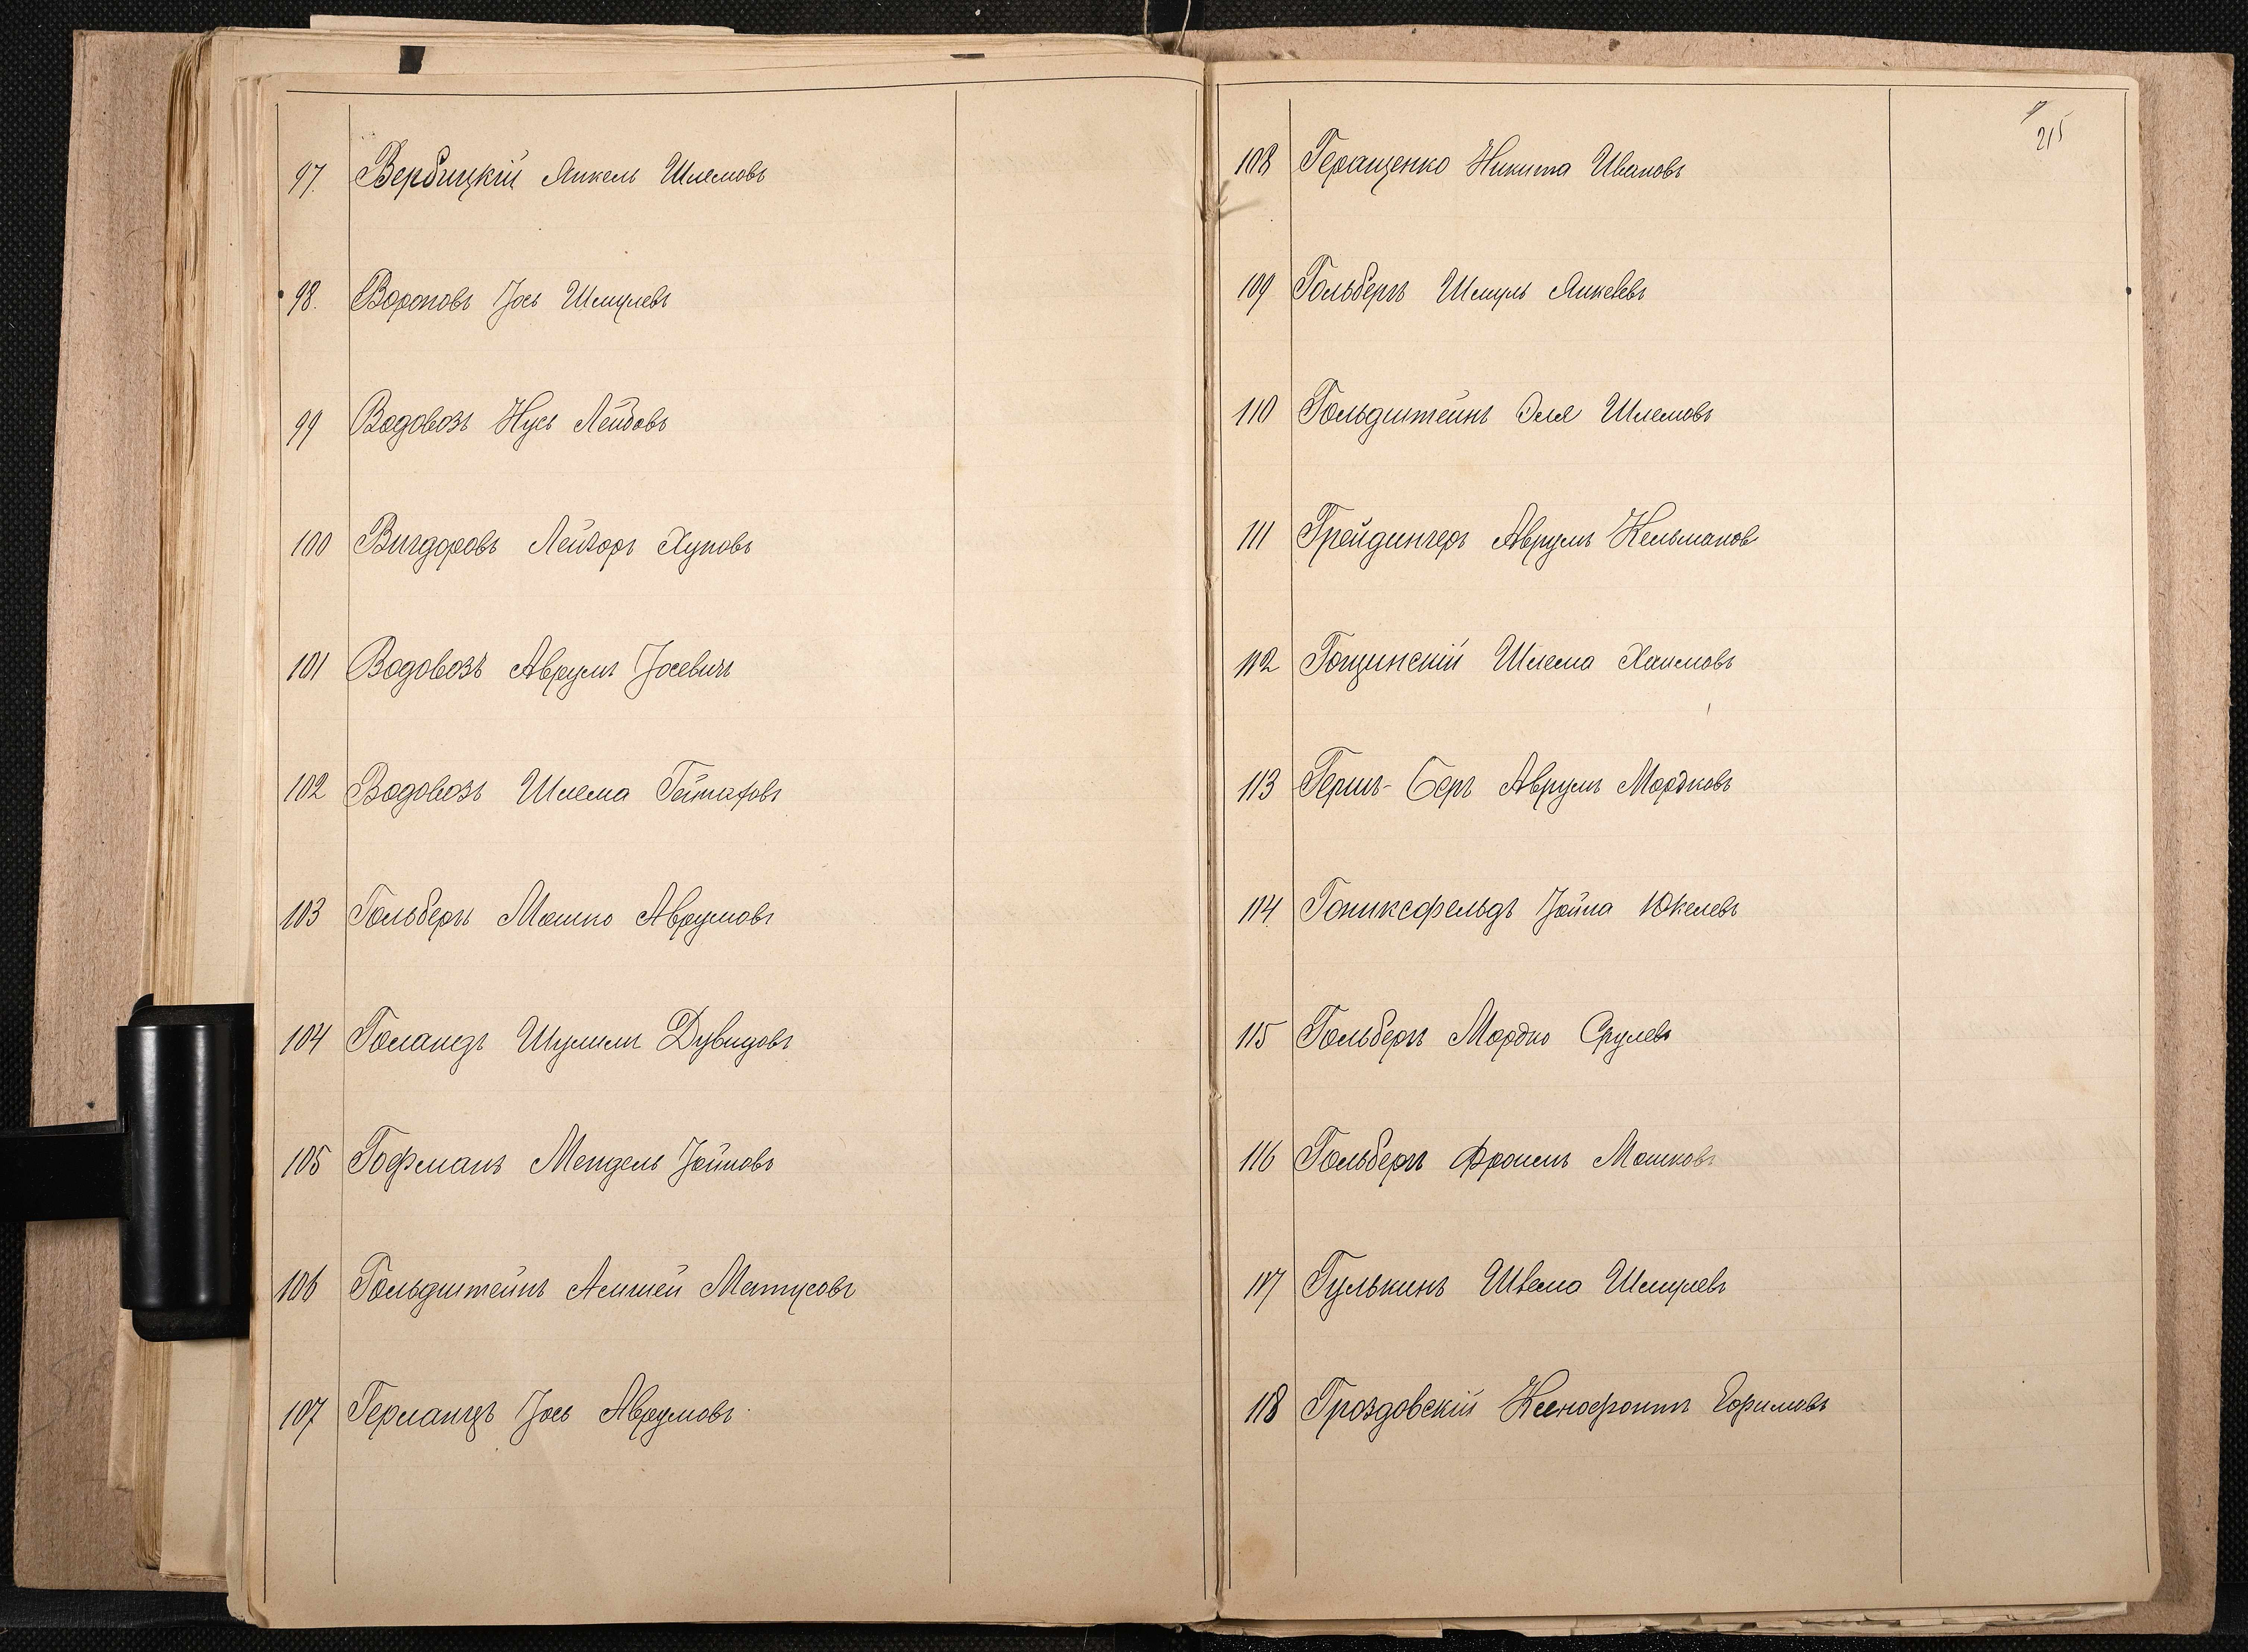 97. Вербицкій Янкель Шлемовъ
98. Вороновъ Іось Шмулевъ
99 Водовозъ Нусь Лейбовъ
100 Вигдоровъ Лейзоръ Хуновъ
101 Водовозъ Аврумъ Іосевичъ
102 Водовозъ Шлема
103 Гольбергъ Мошко Аврумовъ
104 Голандъ Шулимъ Дувидовъ
105 Гофманъ Мендель Іойновъ
106 Гольдштейнъ Матусовъ
107 Герландъ Іось Аврумовъ
215
108 Геращенко Никита Ивановъ
109 Гольбергъ Шмуль Янкелевъ
110 Гольдштейнъ Эля Шлемовъ
111 Грейдингеръ Аврумъ Кельманов
112 Гощинскій Шлема Хаимовъ
113 Гершъ-Беръ Аврумъ Мордковъ
114 Гониксфельдъ Іойна Юкелевъ
115 Гольбергъ Мордко Срулевъ
116 Гольбергъ Фроимъ Мошковъ
117 Гулькинъ Шлема Шмулевъ
118 Гроздовскій Ксенофонтъ Ефимовъ